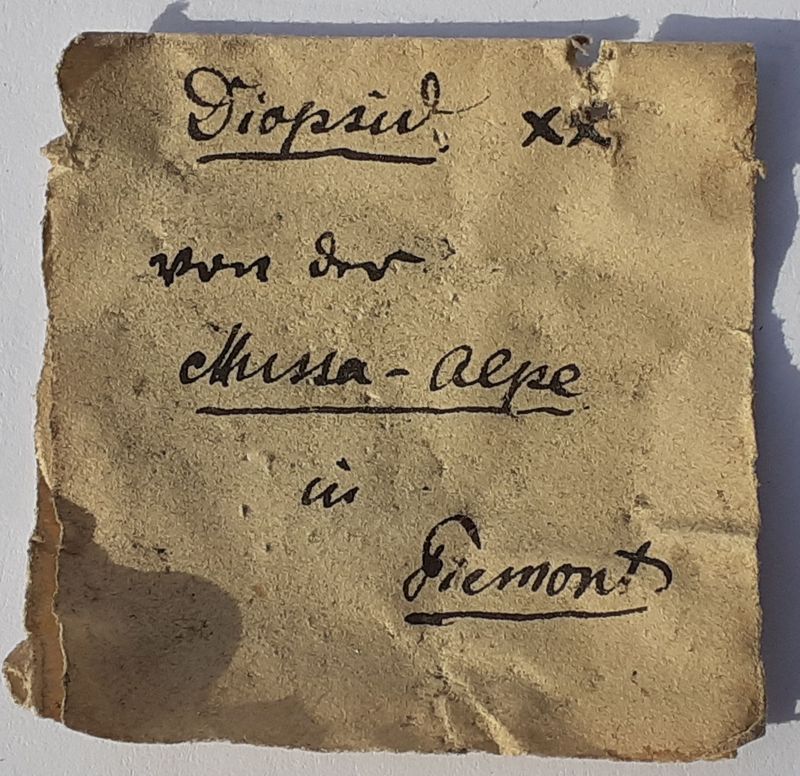 Diopsid. xx
von der
Mussa-Alpe
in
Piemont